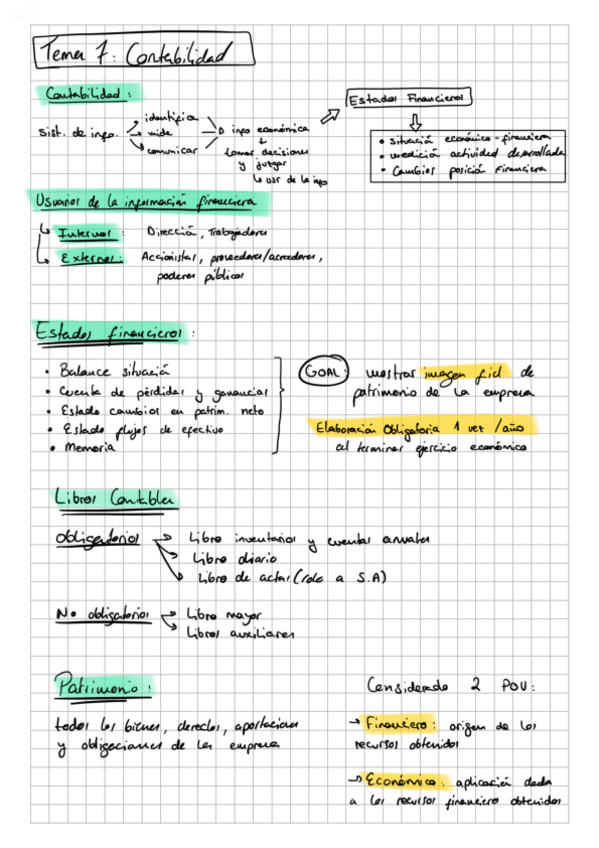 Tema 7: Contabilidad
Contabilidad:
sist. de info. → identifica
→ mide
→ comunicar
→ info económica
↓
tomar decisiones
y juzgar
↳ usr de la info
⇒ Estados Financieros
⇓
• situación económico-financiera
• medición actividad desarrollada
• Cambios posición financiera
Usuarios de la información financiera
↳ Internos: Dirección, Trabajadores
↳ Externos: Accionistas, proveedores/acreedores,
poderes públicos
Estados financieros:
• Balance situación
• Cuenta de pérdidas y ganancias
• Estado cambios en patrim. neto
• Estado flujos de efectivo
• Memoria
GOAL: mostrar imagen fiel de
patrimonio de la empresa
Elaboración Obligatoria 1 vez/año
al terminar ejercicio económico
Libros Contables
Obligatorios → Libro inventarios y cuentas anuales
→ Libro diario
→ Libro de actas (solo a S.A)
No obligatorios → Libro mayor
→ Libros auxiliares
Patrimonio:
todos los bienes, derechos, aportaciones
y obligaciones de la empresa
Considerado 2 POV:
→ Financiero: origen de los
recursos obtenidos
→ Económico: aplicación dada
a los recursos financiero obtenidos